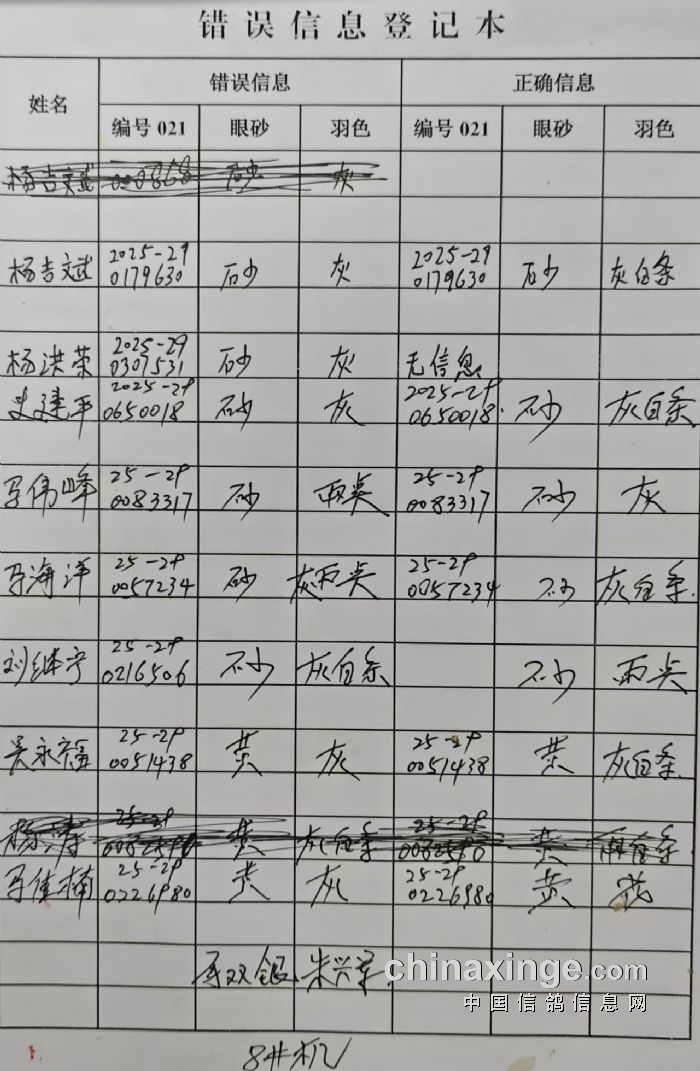 错误信息登记本
姓名 错误信息 正确信息
编号 021 眼砂 羽色 编号 021 眼砂 羽色
杨吉文斌 000868 砂 灰
2025-29 2025-29
杨吉文斌 0179630 砂 灰 0179630 砂 灰白条
2025-29
杨洪荣 0307531 砂 灰 无信息
2025-29 2025-29
史建平 0650018 砂 灰 0650018. 砂 灰白条
25-29 25-29
马伟峰 0083317 砂 雨点 0083317 砂 灰
25-29 25-29
马海洋 0057234 砂 灰雨点 0057234 砂 灰白条.
25-29
刘继宁 0216506 砂 灰白条 砂 雨点
25-29 25-29
吴永福 0051438 黄 灰 0051438 黄 灰白条
25-29 25-29
杨 黄 灰白条 黄
25-29 25-29
马佳楠 0226980 黄 灰 0226980 黄 花
双银 朱兴军
chinaxinge.com
中国信鸽信息网
8#机